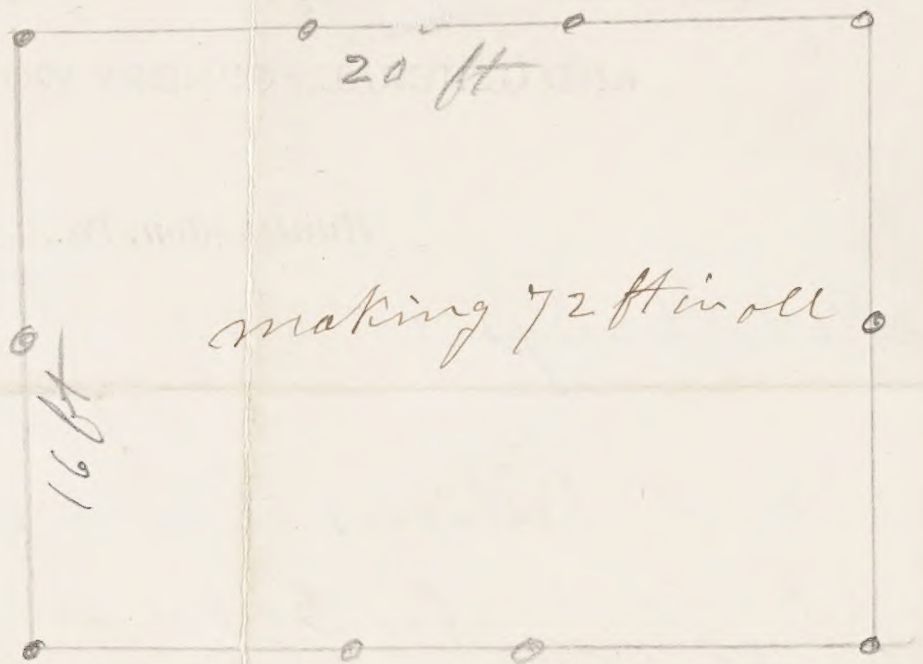 20 ft
making 72 ft in all
16 ft